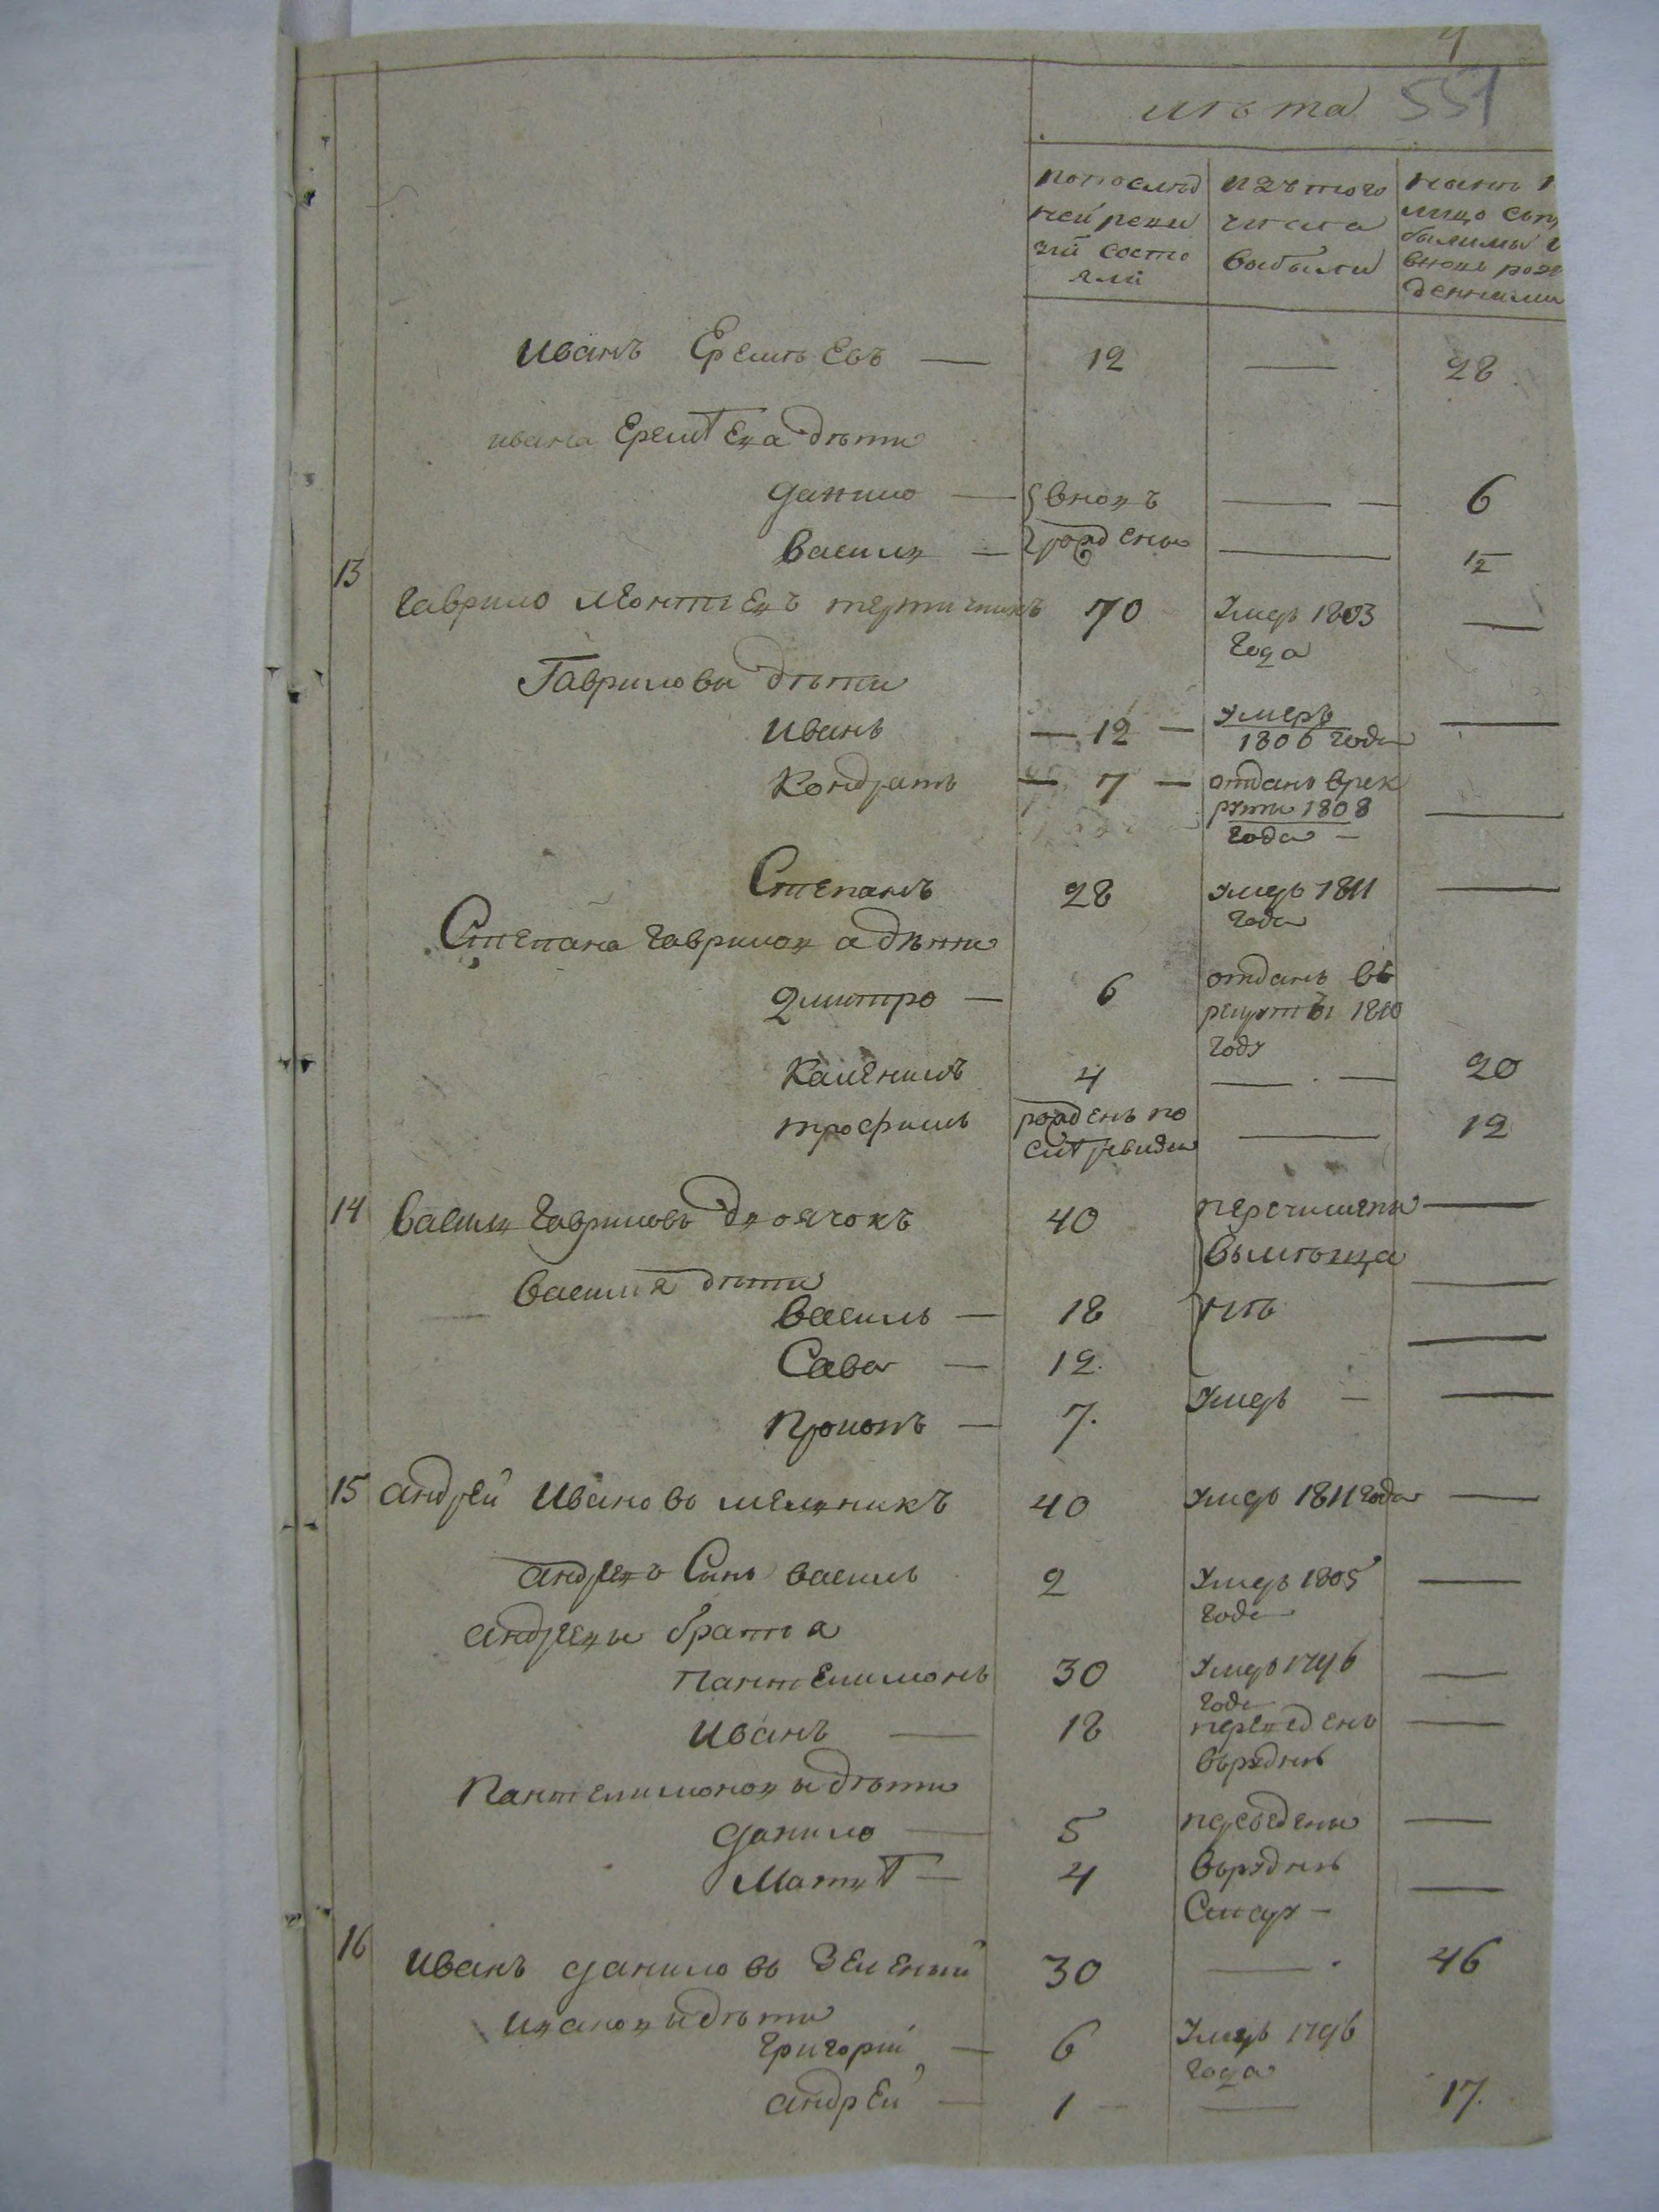 4
лѣта 551
попослѣд ней ревизіи состояли
изъ того числа выбыли
нынѣ на лицо
Иванъ Еремѣевъ — 12 — 28
ивана Еремѣева дѣти
данило — вновь — 6
василь — рождены — 1/2
13 гаврило Леонтіевъ 70 умеръ 1803 года —
Гавриловы дѣти
иванъ — 12 — умеръ 1806 года —
Кондратъ — 7 — отданъ врекруты 1808 года —
Степанъ 28 умеръ 1811 года —
Степана гаврилова дѣти
Дмитро — 6 отданъ въ рекруты 1810 году
Каленикъ 4 — 20
трофимъ рожденъ по сей ревизіи — 12
14 василь гавриловъ 40 перечислены —
василія дѣти вымѣщане
василь — 18 —
Сава — 12. —
Прокопъ — 7. умеръ — —
15 андрей ивановъ мелникъ 40 умеръ 1811 года —
андреевъ Синъ василь 2 умеръ 1805 года —
андреевы братія
пантелимонъ 30 умеръ 1796 года —
иванъ — 18 переведенъ —
Пантелимоновы дѣти
данило — 5 переведены —
Матвѣй — 4 —
16 иванъ даниловъ Зелений 30 — 46
ивановы дѣти
григорій — 6 умеръ 1796 года
андрей — 1 — — 17.